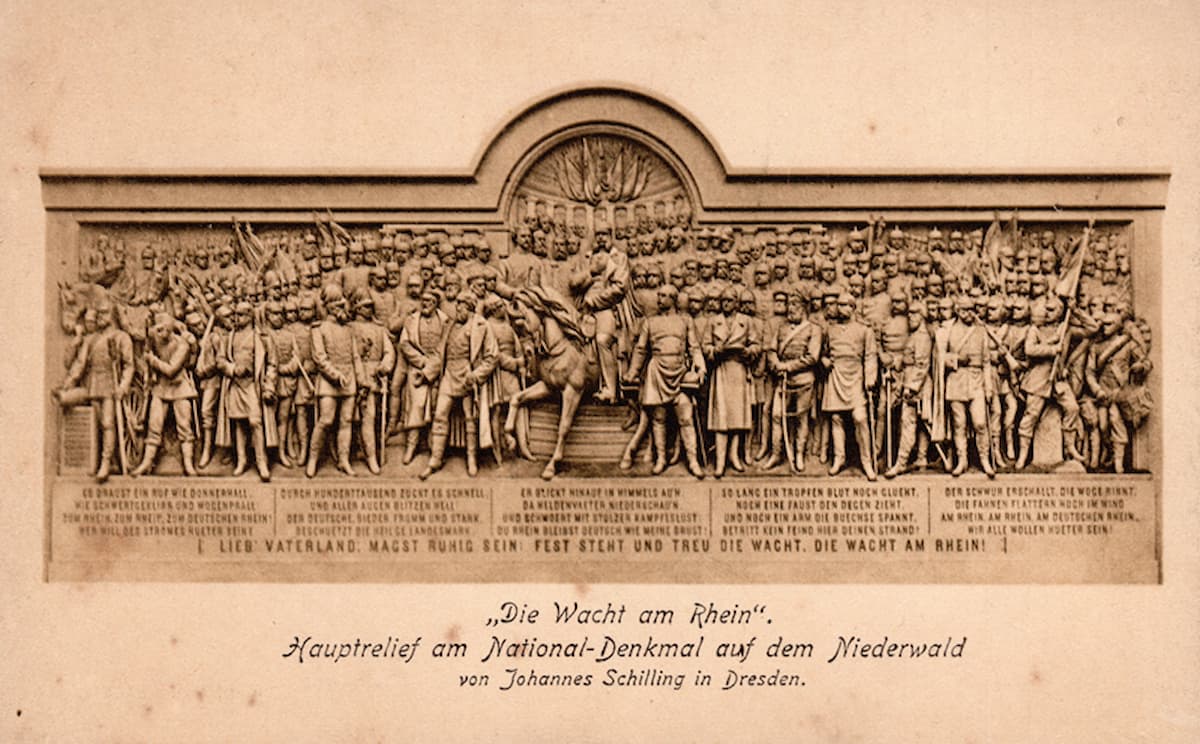 ES BRAUST EIN RUF WIE DONNERHALL,
WIE SCHWERTGEKLIRR UND WOGENPRALL
ZUM RHEIN, ZUM RHEIN, ZUM DEUTSCHEN RHEIN!
WER WILL DES STROMES HUETER SEIN?
DURCH HUNDERTTAUSEND ZUCKT ES SCHNELL,
UND ALLER AUGEN BLITZEN HELL
DER DEUTSCHE, BIEDER, FROMM UND STARK,
BESCHUETZT DIE HEIL'GE LANDESMARK.
ER BLICKT HINAUF IN HIMMELS AU'N,
DA HELDENVAETER NIEDERSCHAU'N,
UND SCHWOERT MIT STOLZER KAMPFESLUST:
DU RHEIN BLEIBST DEUTSCH WIE MEINE BRUST!
SO LANG EIN TROPFEN BLUT NOCH GLUEHT,
NOCH EINE FAUST DEN DEGEN ZIEHT,
UND NOCH EIN ARM DIE BUECHSE SPANNT,
BETRITT KEIN FEIND HIER DEINEN STRAND!
DER SCHWUR ERSCHALLT, DIE WOGE RINNT,
DIE FAHNEN FLATTERN HOCH IM WIND
AM RHEIN, AM RHEIN, AM DEUTSCHEN RHEIN,
WIR ALLE WOLLEN HUETER SEIN!
LIEB' VATERLAND, MAGST RUHIG SEIN: FEST STEHT UND TREU DIE WACHT, DIE WACHT AM RHEIN!
„Die Wacht am Rhein“.
Hauptrelief am National-Denkmal auf dem Niederwald
von Johannes Schilling in Dresden.